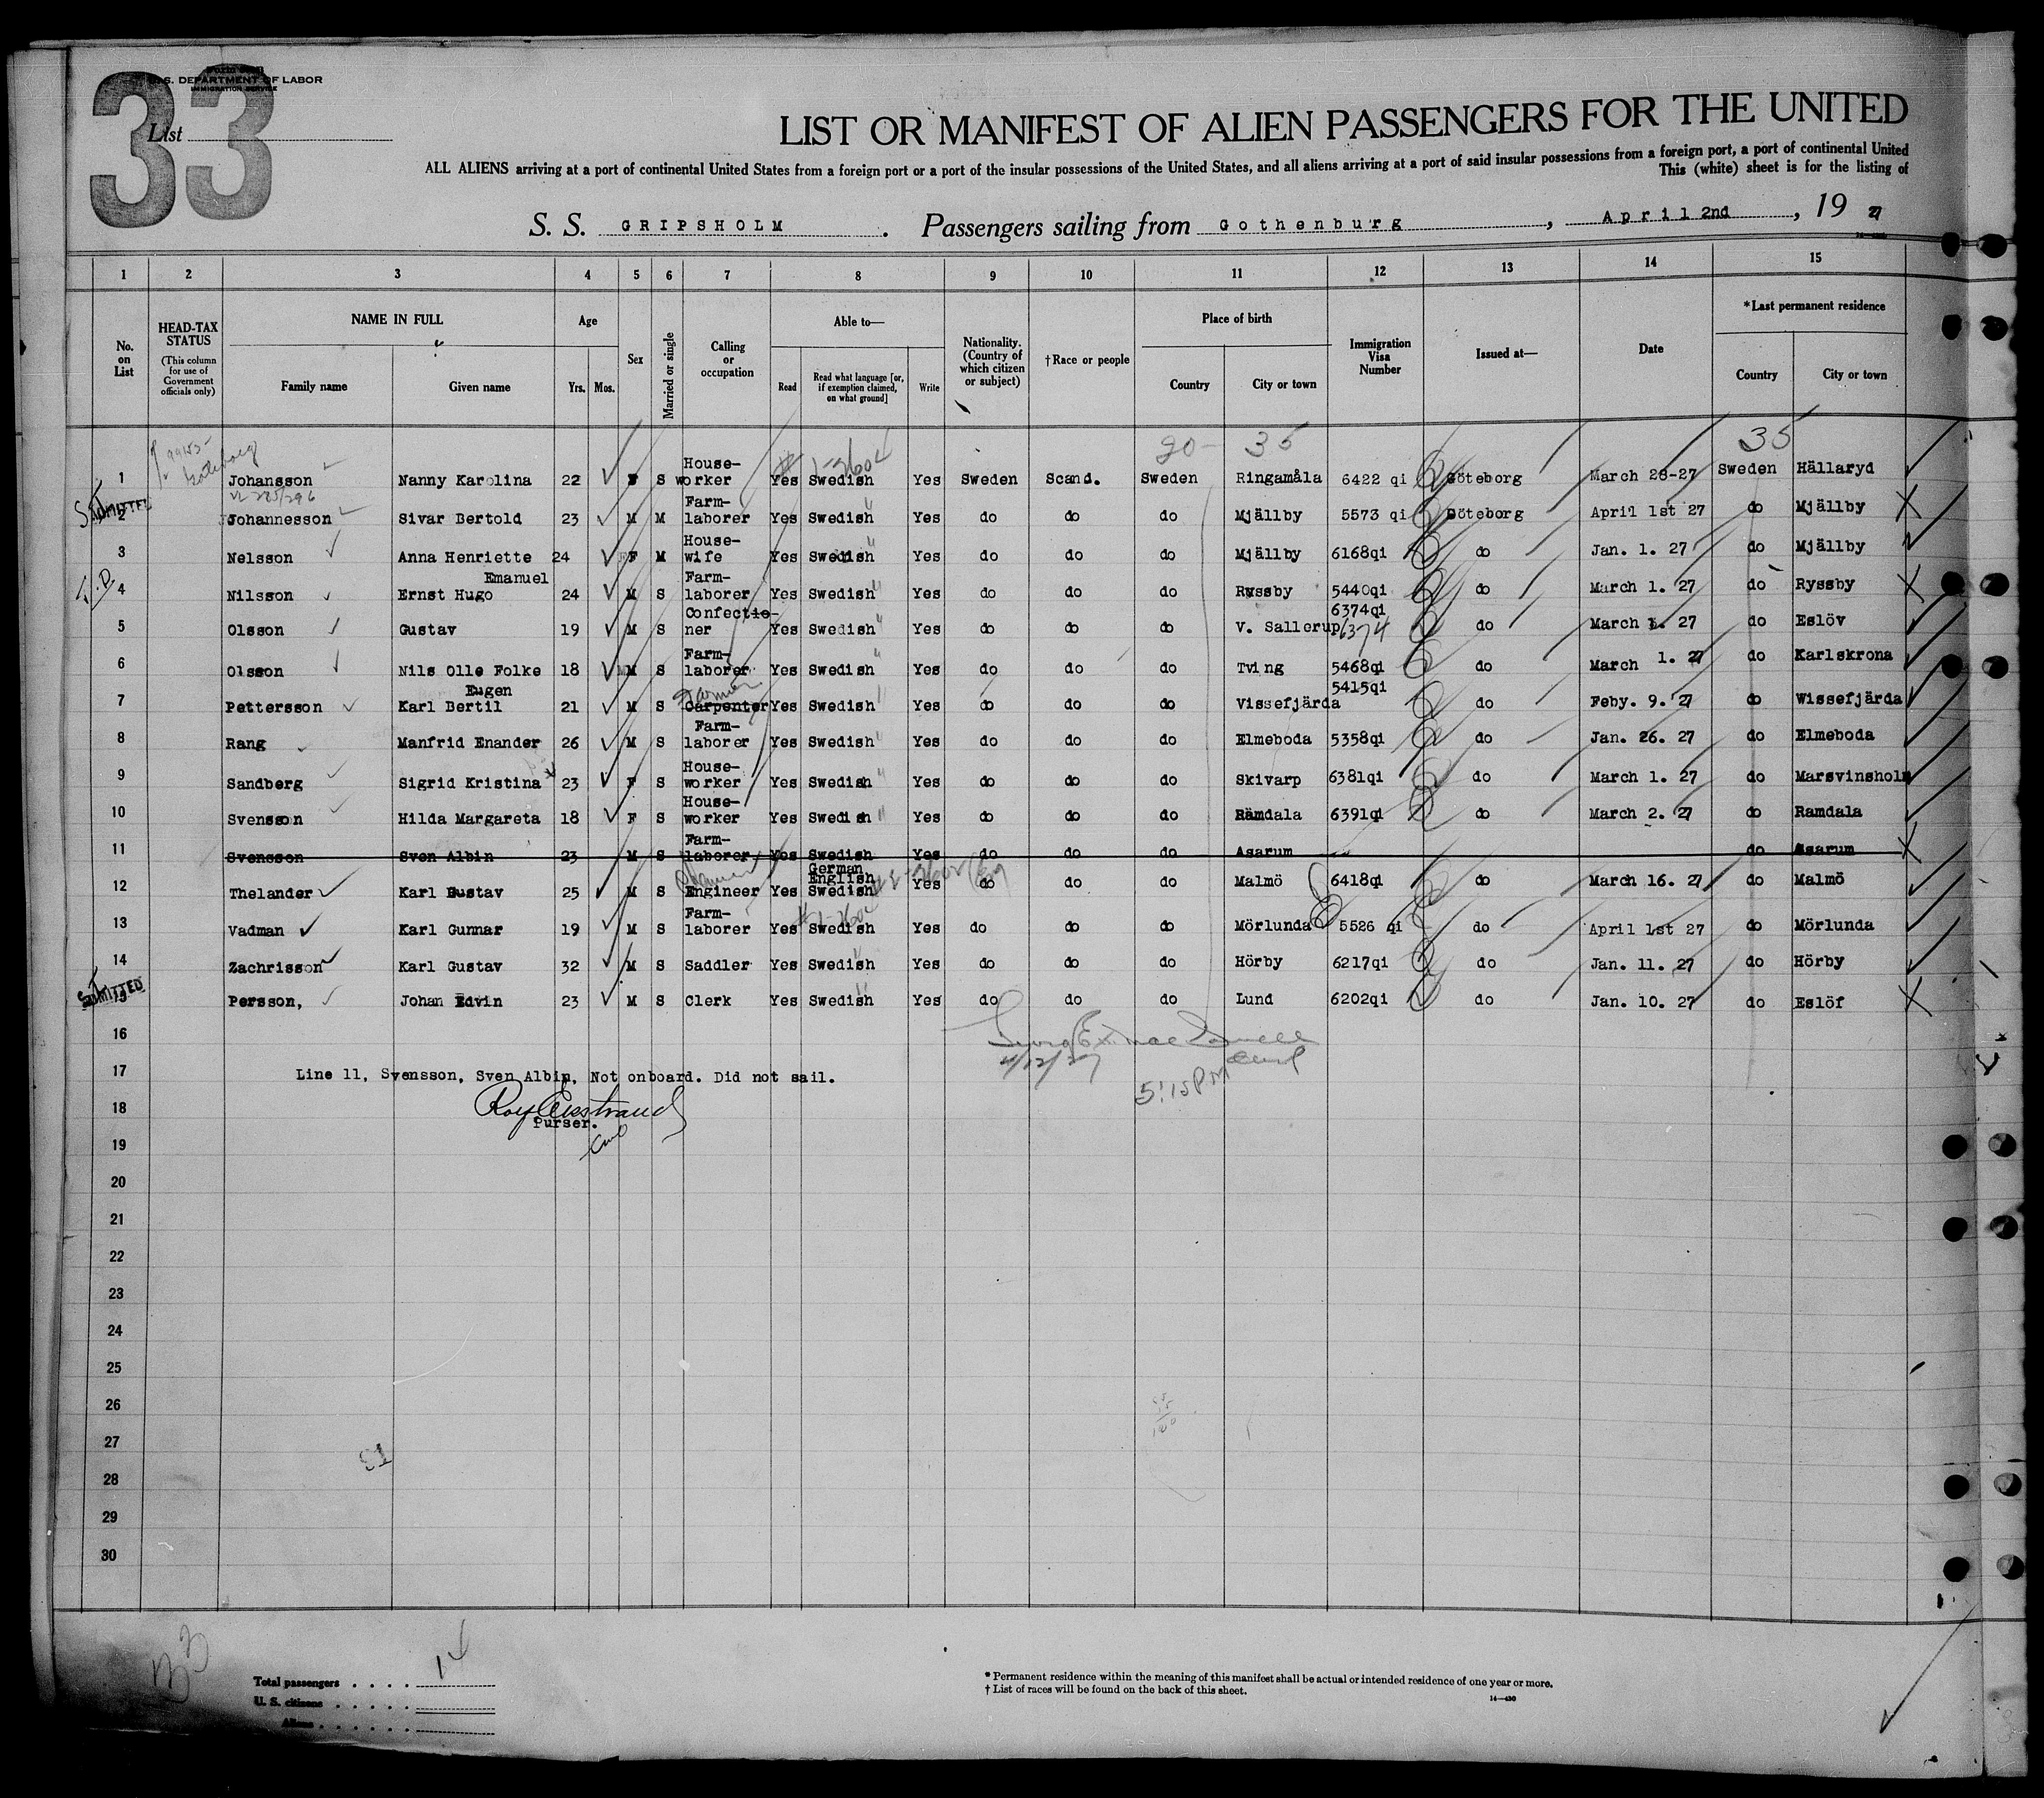 33
Form
U. S. DEPARTMENT OF LABOR
IMMIGRATION SERVICE
List
LIST OR MANIFEST OF ALIEN PASSENGERS FOR THE UNITED
ALL ALIENS arriving at a port of continental United States from a foreign port or a port of the insular possessions of the United States, and all aliens arriving at a port of said insular possessions from a foreign port, a port of continental United
This (white) sheet is for the listing of
S. S. GRIPSHOLM. Passengers sailing from Gothenburg, April 2nd, 1927
1 2 3 4 5 6 7 8 9 10 11 12 13 14 15
No. on List
HEAD-TAX STATUS (This column for use of Government officials only)
NAME IN FULL Family name Given name
Age Yrs. Mos.
Sex
Married or single
Calling or occupation
Able to— Read Read what language [or, if exemption claimed, on what ground] Write
Nationality. (Country of which citizen or subject)
†Race or people
Place of birth Country City or town
Immigration Visa Number
Issued at—
Date
*Last permanent residence Country City or town
20- 35 35
1 Johansson Nanny Karolina 22 F S House-worker Yes Swedish Yes Sweden Scand. Sweden Ringamåla 6422 qi Göteborg March 28-27 Sweden Hällaryd
ADMITTED
2 Johannesson Sivar Bertold 23 M M Farm-laborer Yes Swedish Yes do do do Mjällby 5573 qi Göteborg April 1st 27 do Mjällby
3 Nelsson Anna Henriette 24 F M House-wife Yes Swedish Yes do do do Mjällby 6168qi do Jan. 1. 27 do Mjällby
4 Nilsson Ernst Hugo Emanuel 24 M S Farm-laborer Yes Swedish Yes do do do Ryssby 5440qi do March 1. 27 do Ryssby
5 Olsson Gustav 19 M S Confectioner Yes Swedish Yes do do do V. Sallerup 6374qi 6374 do March 1. 27 do Eslöv
6 Olsson Nils Olle Folke 18 M S Farm-laborer Yes Swedish Yes do do do Tving 5468qi do March 1. 27 do Karlskrona
7 Pettersson Karl Bertil Eugen 21 M S Farmer Carpenter Yes Swedish Yes do do do Vissefjärda 5415qi do Feby. 9. 27 do Wissefjärda
8 Rang Manfrid Enander 26 M S Farm-laborer Yes Swedish Yes do do do Elmeboda 5358qi do Jan. 26. 27 do Elmeboda
9 Sandberg Sigrid Kristina 23 F S House-worker Yes Swedish Yes do do do Skivarp 6381qi do March 1. 27 do Marsvinsholm
10 Svensson Hilda Margareta 18 F S House-worker Yes Swedish Yes do do do Ramdala 6391qi do March 2. 27 do Ramdala
11 Svensson Sven Albin 23 M S Farm-laborer Yes Swedish Yes do do do Asarum do Asarum
12 Thelander Karl Gustav 25 M S Engineer Yes German English Swedish Yes do do do Malmö 6418qi do March 16. 27 do Malmö
13 Vadman Karl Gunnar 19 M S Farm-laborer Yes Swedish Yes do do do Mörlunda 5526 qi do April 1st 27 do Mörlunda
14 Zachrisson Karl Gustav 32 M S Saddler Yes Swedish Yes do do do Hörby 6217qi do Jan. 11. 27 do Hörby
ADMITTED
15 Persson, Johan Edvin 23 M S Clerk Yes Swedish Yes do do do Lund 6202qi do Jan. 10. 27 do Eslöf
16
4/12/27
17 Line 11, Svensson, Sven Albin, Not onboard. Did not sail.
5:15 PM
18
Purser.
19
20
21
22
23
24
25
26
27
28
29
30
33
Total passengers . . . . 14
U. S. citizens . . . . .
Aliens . . . . . .
* Permanent residence within the meaning of this manifest shall be actual or intended residence of one year or more.
† List of races will be found on the back of this sheet.
14—430